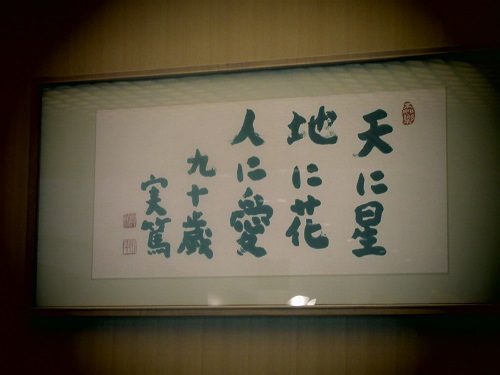 天に星
地に花
人に愛
九十歳
実篤